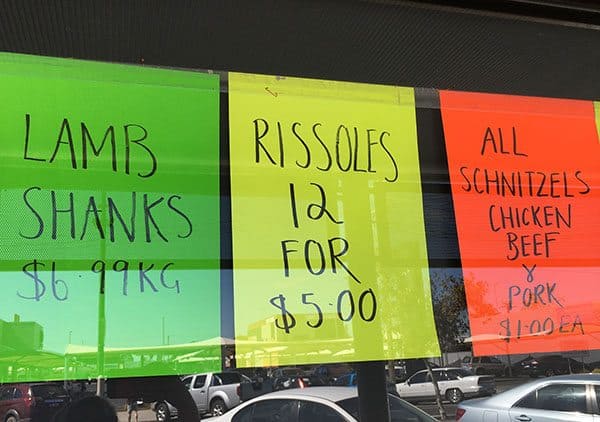 LAMB
SHANKS
$6.99KG
RISSOLES
12
FOR
$5.00
ALL
SCHNITZELS
CHICKEN
BEEF
&
PORK
$1.00EA